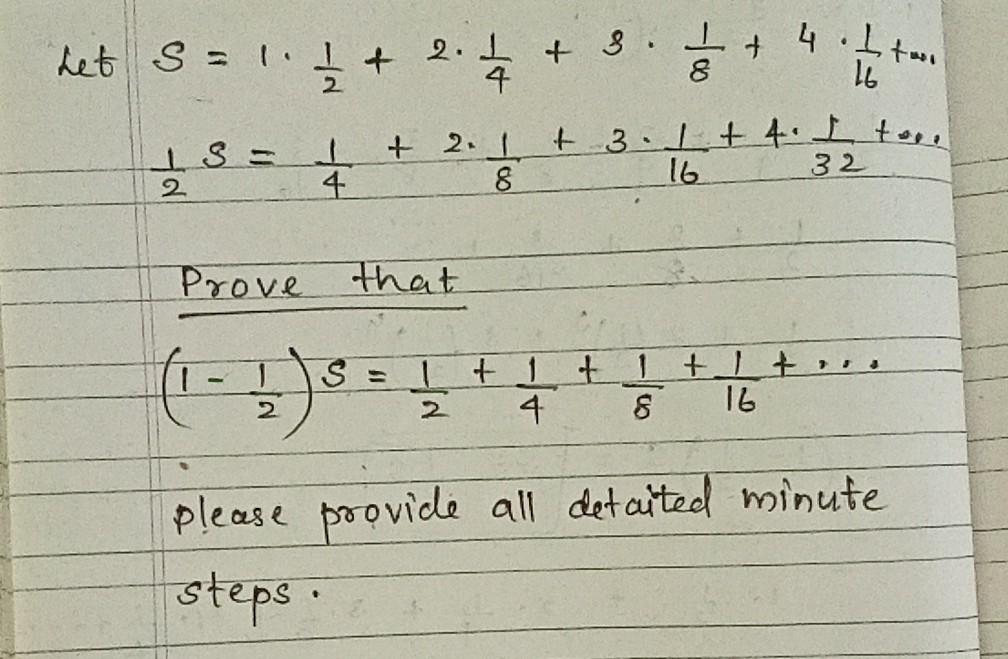 Let S = 1 · 1/2 + 2 · 1/4 + 3 · 1/8 + 4 · 1/16 + ...
1/2 S = 1/4 + 2 · 1/8 + 3 · 1/16 + 4 · 1/32 + ...
Prove that
(1 - 1/2) S = 1/2 + 1/4 + 1/8 + 1/16 + ...
please provide all detaited minute
steps.